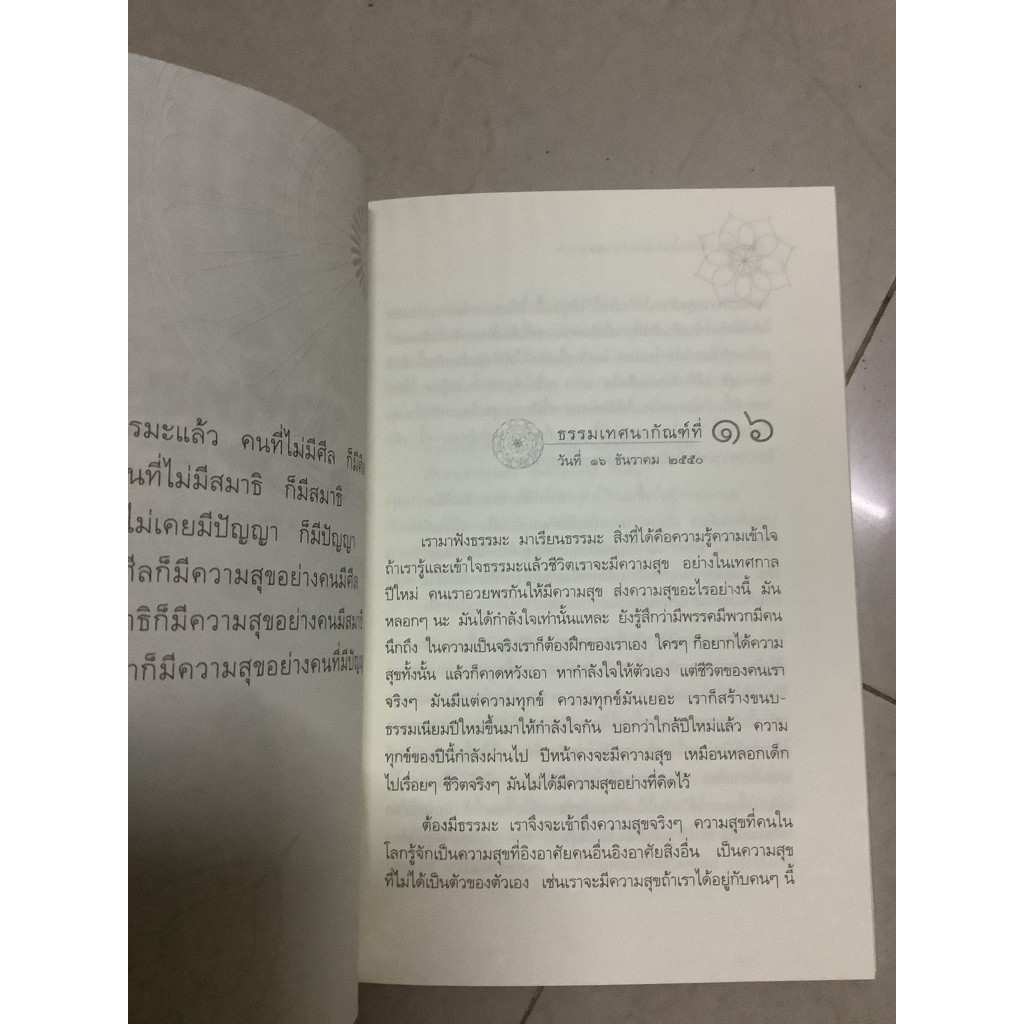 รรมะแล้ว คนที่ไม่มีศีล ก็มีศี
นที่ไม่มีสมาธิ ก็มีสมาธิ
ไม่เคยมีปัญญา ก็มีปัญญา
ศีลก็มีความสุขอย่างคนมีศีล
าธิก็มีความสุขอย่างคนมีสมาธิ
าก็มีความสุขอย่างคนที่มีปัญญ
ธรรมเทศนากัณฑ์ที่ ๑๖
วันที่ ๑๖ ธันวาคม ๒๕๕๐
เรามาฟังธรรมะ มาเรียนธรรมะ สิ่งที่ได้คือความรู้ความเข้าใจ
ถ้าเรารู้และเข้าใจธรรมะแล้วชีวิตเราจะมีความสุข อย่างในเทศกาล
ปีใหม่ คนเราอวยพรกันให้มีความสุข ส่งความสุขอะไรอย่างนี้ มัน
หลอกๆ นะ มันได้กำลังใจเท่านั้นแหละ ยังรู้สึกว่ามีพรรคมีพวกมีคน
นึกถึง ในความเป็นจริงเราก็ต้องฝึกของเราเอง ใครๆ ก็อยากได้ความ
สุขทั้งนั้น แล้วก็คาดหวังเอา หากำลังใจให้ตัวเอง แต่ชีวิตของคนเรา
จริงๆ มันมีแต่ความทุกข์ ความทุกข์มันเยอะ เราก็สร้างขนบ-
ธรรมเนียมปีใหม่ขึ้นมาให้กำลังใจกัน บอกว่าใกล้ปีใหม่แล้ว ความ
ทุกข์ของปีนี้กำลังผ่านไป ปีหน้าคงจะมีความสุข เหมือนหลอกเด็ก
ไปเรื่อยๆ ชีวิตจริงๆ มันไม่ได้มีความสุขอย่างที่คิดไว้
ต้องมีธรรมะ เราจึงจะเข้าถึงความสุขจริงๆ ความสุขที่คนใน
โลกรู้จักเป็นความสุขที่อิงอาศัยคนอื่นอิงอาศัยสิ่งอื่น เป็นความสุข
ที่ไม่ได้เป็นตัวของตัวเอง เช่นเราจะมีความสุขถ้าเราได้อยู่กับคนๆ นี้